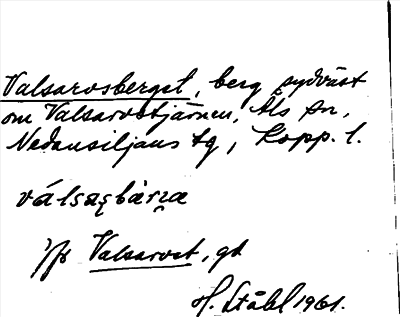 Valsarosberget, berg sydväst
om Valsarvstjärnen, Als sn,
Nedansiljans tg, Kopp. l.
válsasbàrja
Jfr Valsarvet, gd
H. Ståhl 1961.